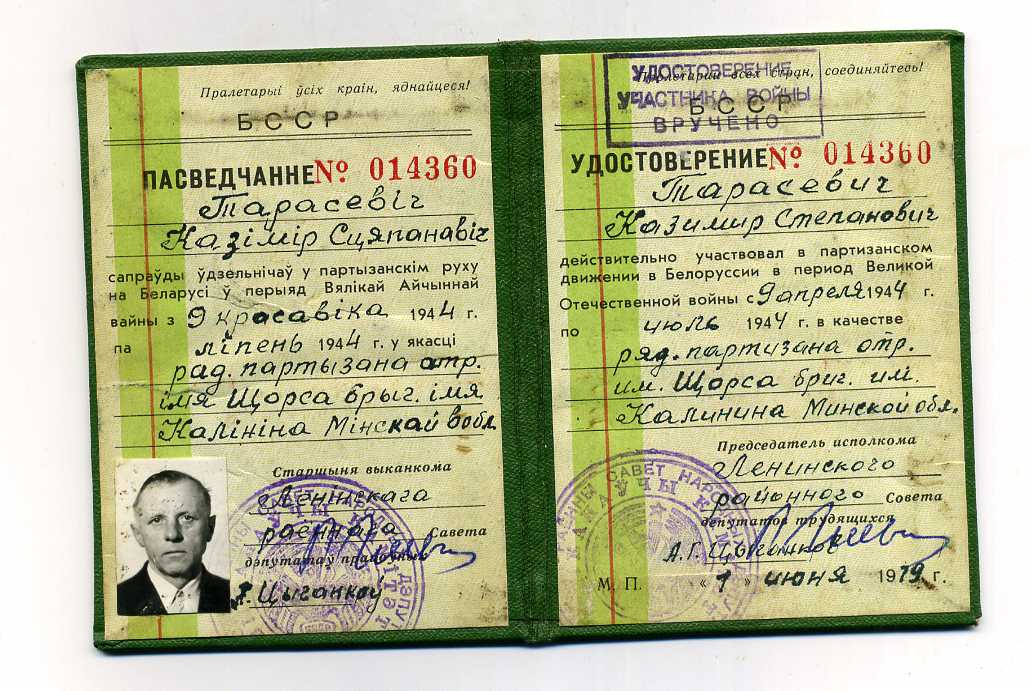 Пралетарыі ўсіх краін, яднайцеся!
БССР
ПАСВЕДЧАННЕ № 014360
Тарасевіч
Казімір Сцяпанавіч
сапраўды ўдзельнічаў у партызанскім руху
на Беларусі ў перыяд Вялікай Айчыннай
вайны з 9 красавіка 1944 г.
па ліпень 1944 г. у якасці
рад. партызана атр.
імя Щорса брыг. імя
Калініна Мінскай вобл.
Старшыня выканкома
Ленінскага
раённага Савета
дэпутатаў працоўных
Цыганкоў
Пролетарии всех стран, соединяйтесь!
УДОСТОВЕРЕНИЕ
УЧАСТНИКА ВОЙНЫ
ВРУЧЕНО
БССР
УДОСТОВЕРЕНИЕ № 014360
Тарасевич
Казимир Степанович
действительно участвовал в партизанском
движении в Белоруссии в период Великой
Отечественной войны с 9 апреля 1944 г.
по июль 1944 г. в качестве
ряд. партизана отр.
им. Щорса бриг. им.
Калинина Минской обл.
Председатель исполкома
Ленинского
районного Совета
депутатов трудящихся
А.Г. Цыганков
М. П. « 1 » июня 1979 г.